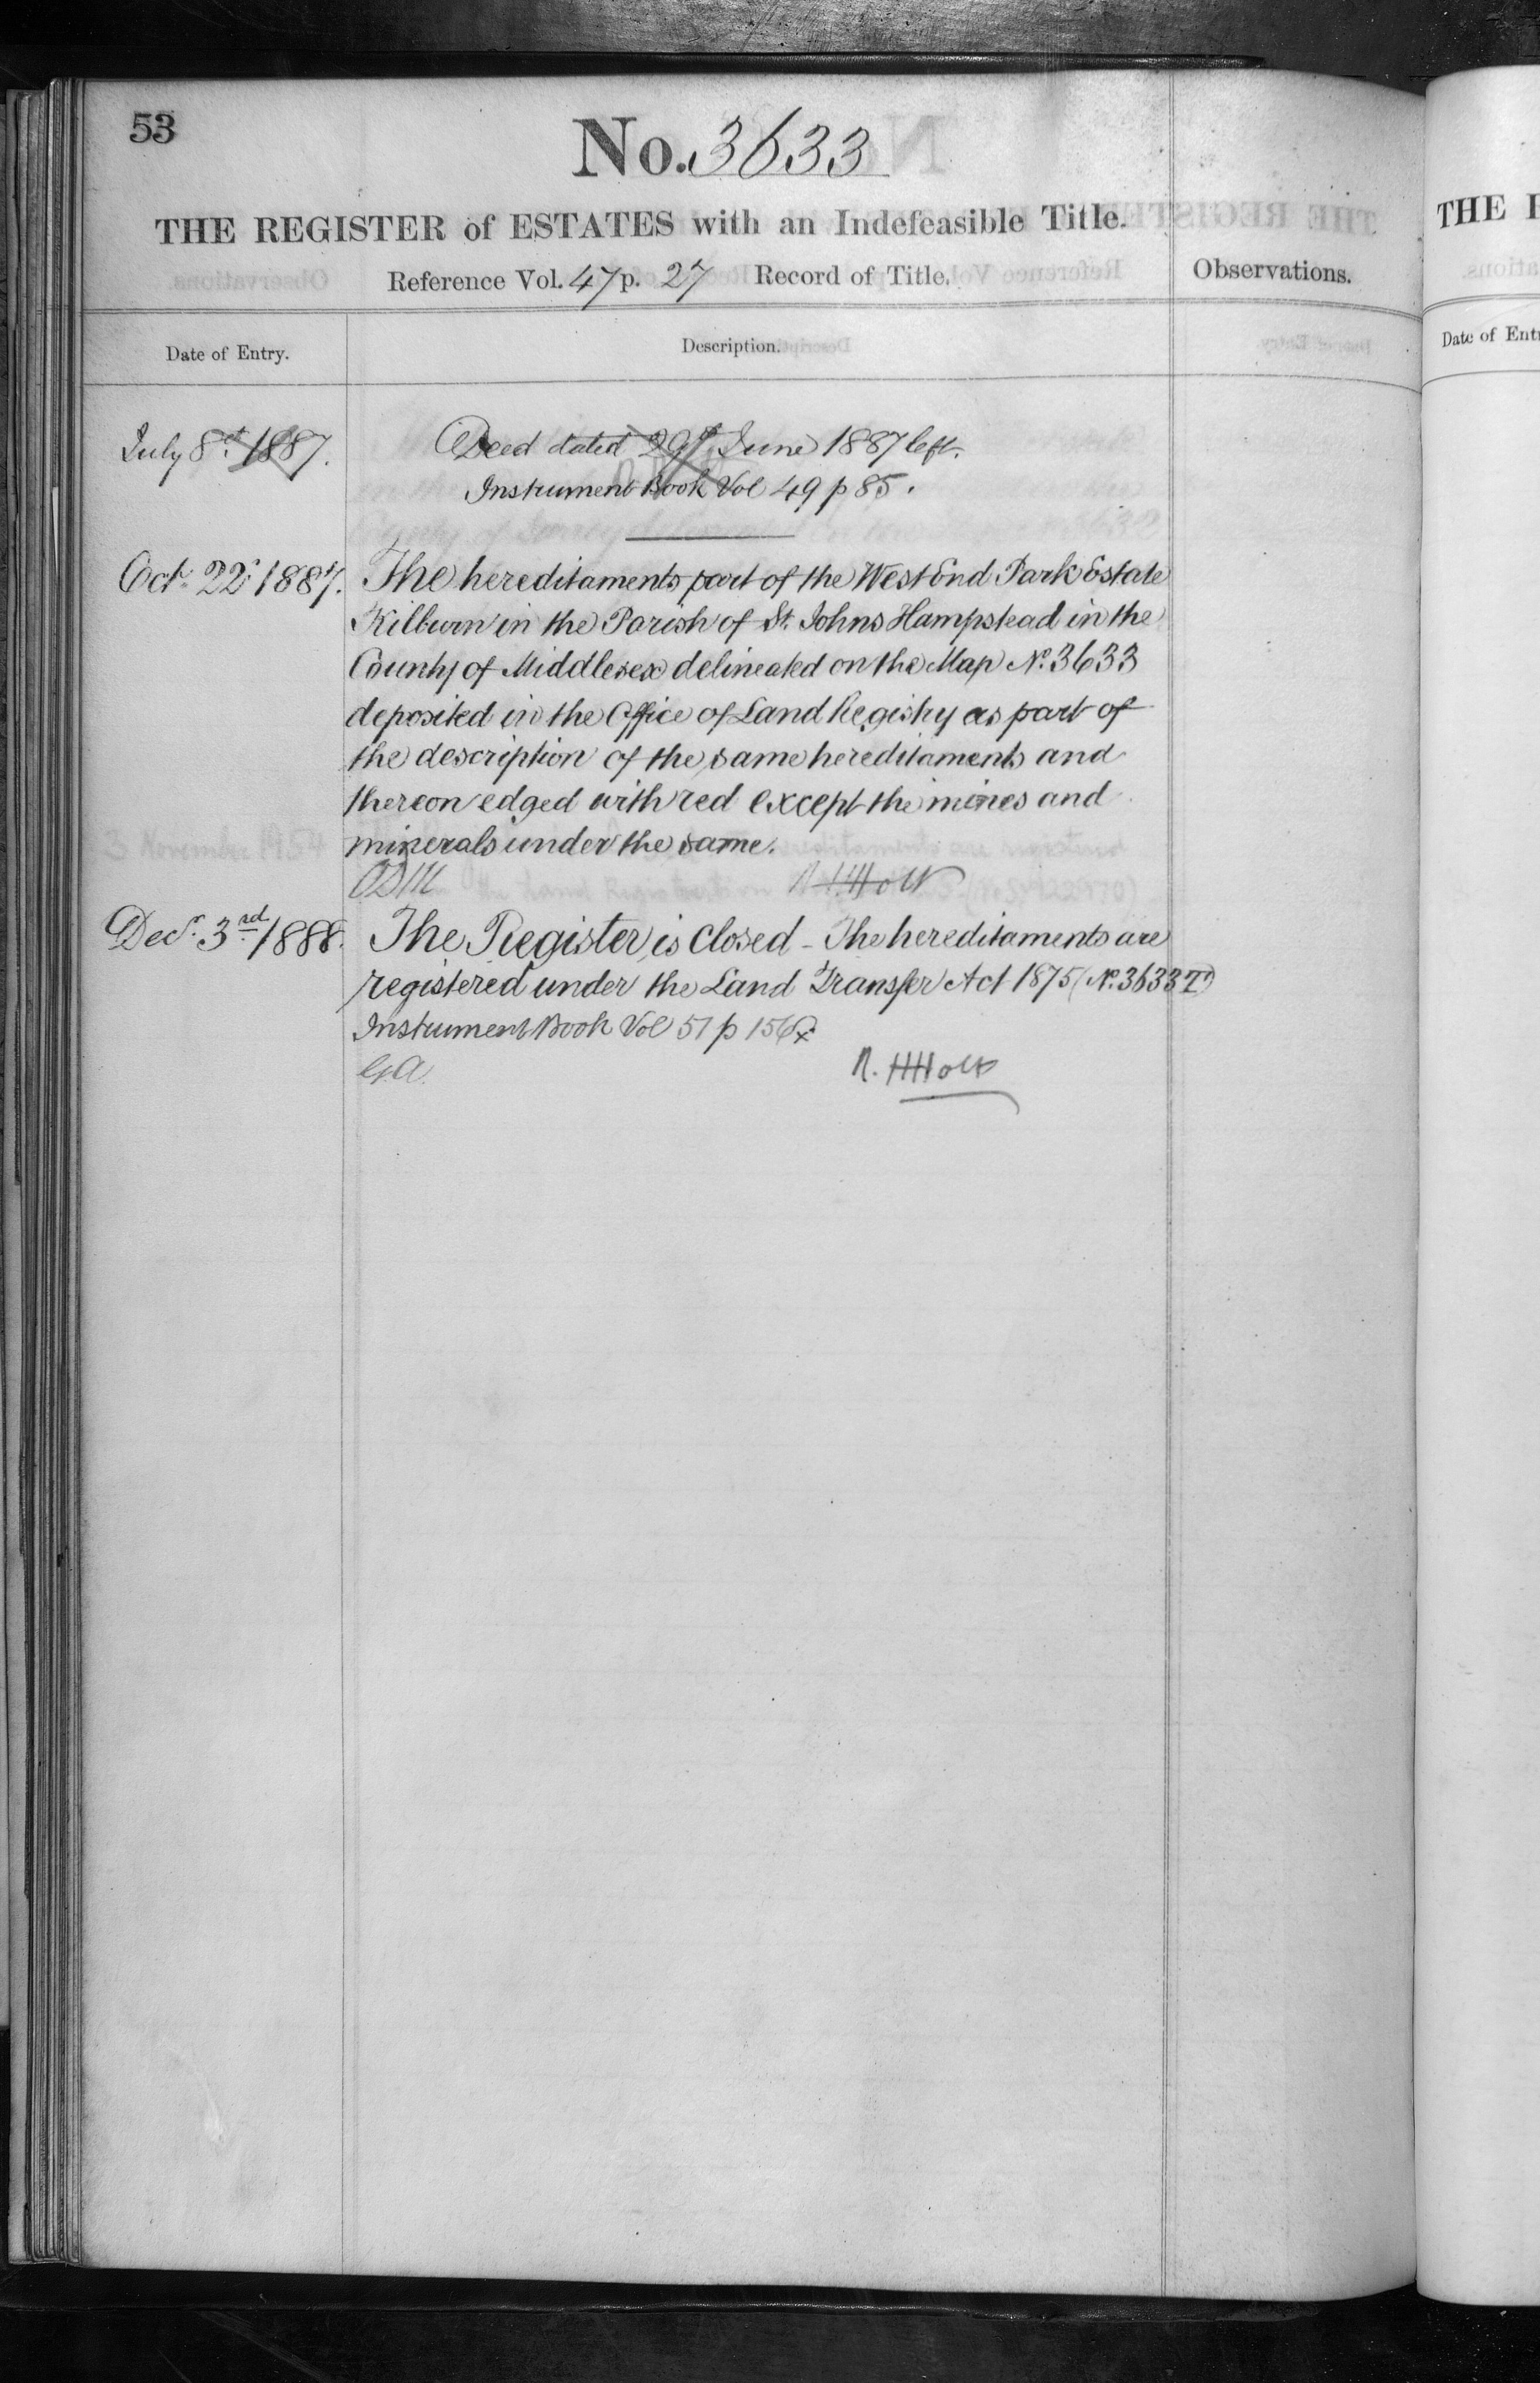 53
No. 3633
THE REGISTER of ESTATES with an Indefeasible Title.
Reference Vol. 47 p. 27 Record of Title.
Observations.
Date of Entry.
Description.
July 8th 1887.
Deed dated 29th June 1887 left.
Instrument Book Vol 49 p 85.
Oct. 22d 1887.
The hereditaments part of the West End Park Estate
Kilburn in the Parish of St. Johns Hampstead in the
County of Middlesex delineated on the Map No. 3633
deposited in the Office of Land Registry as part of
the description of the same hereditaments and
thereon edged with red except the mines and
minerals under the same.
R H Holt
Decr. 3rd 1888.
The Register is closed - The hereditaments are
registered under the Land Transfer Act 1875 (No. 3633
Instrument Book Vol 51 p 156
R. H Holt
THE
Date of Ent